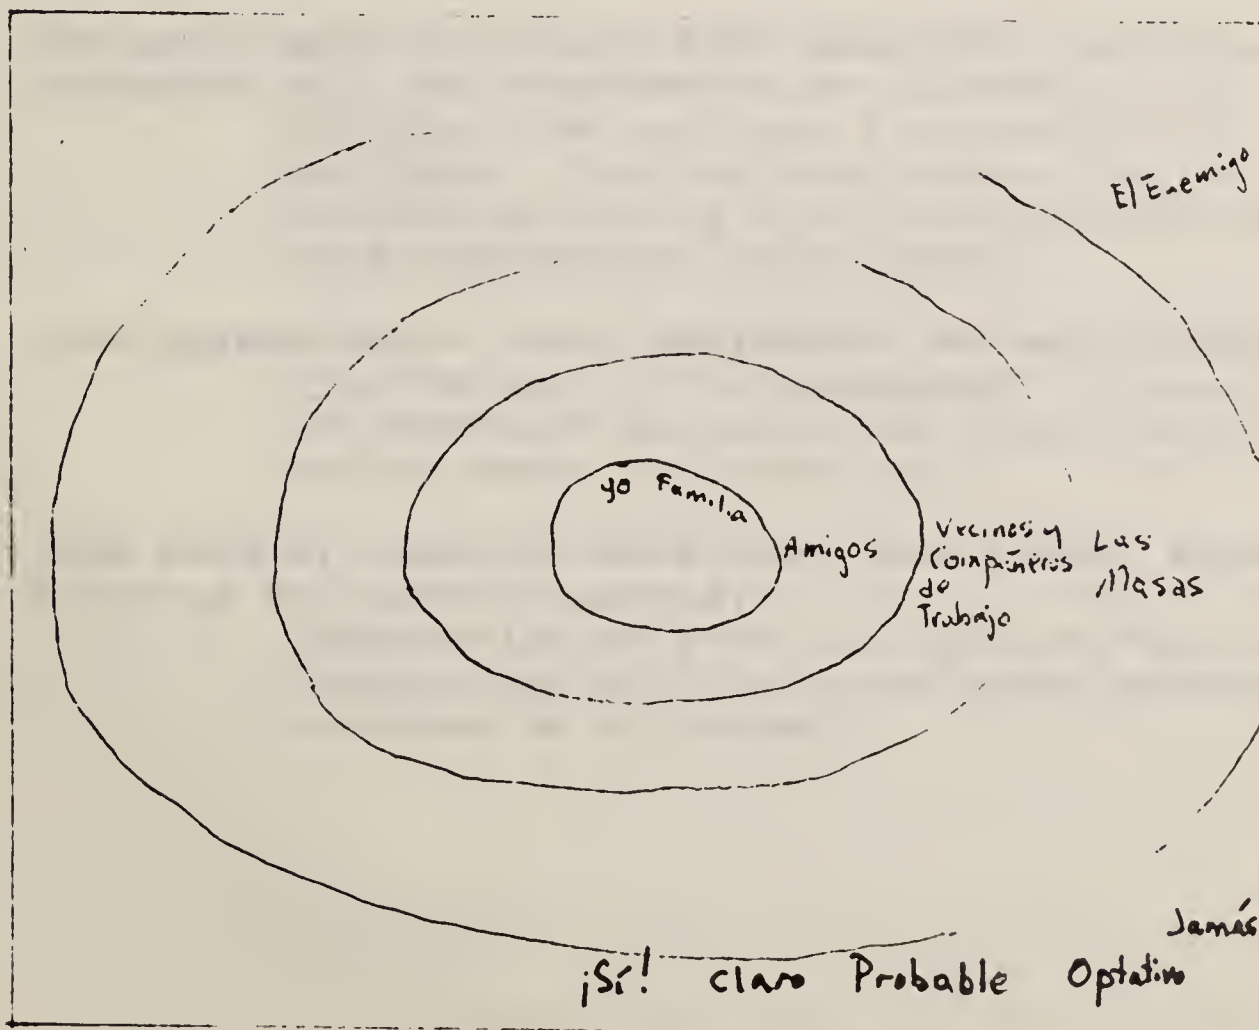 El Enemigo
yo Familia
Amigos
Vecinos y
Compañeros
de
Trabajo
Las
Masas
Jamás
¡Sí! claro Probable Optativo